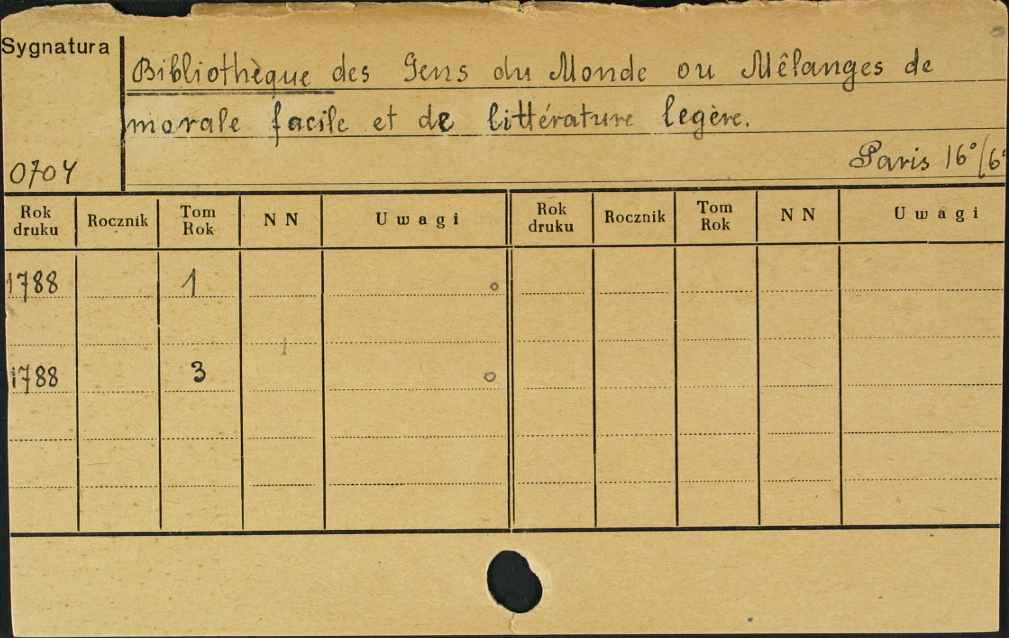 Sygnatura
Bibliothèque des Gens du Monde ou Mêlanges de
morale facile et de littérature legère.
0704
Paris 16°/6°
Rok druku Rocznik Tom Rok NN Uwagi Rok druku Rocznik Tom Rok NN Uwagi
1788 1
1
1788 3